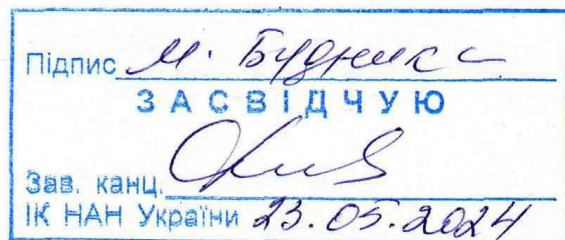 Підпис М. Будника
ЗАСВІДЧУЮ
Зав. канц.
ІК НАН України 23.05.2024